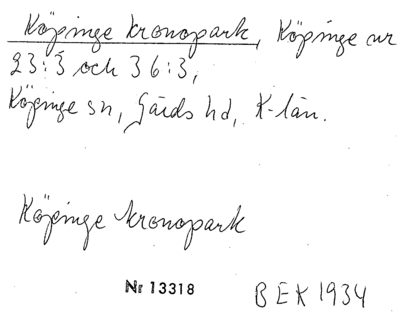 Köpinge kronopark, Köpinge nr
23:3 och 36:3,
Köpinge sn, Gärds hd, K-län.
Köpinge kronopark
Nr 13318
BEK 1934